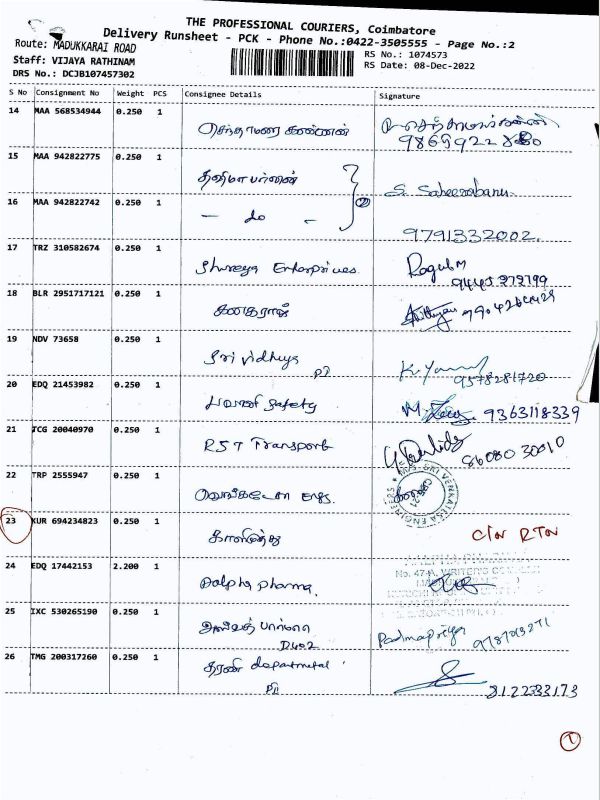 THE PROFESSIONAL COURIERS, Coimbatore
Delivery Runsheet - PCK - Phone No.:0422-3505555 - Page No.:2
Route: MADUKKARAI ROAD
RS No.: 1074573
Staff: VIJAYA RATHINAM
RS Date: 08-Dec-2022
DRS No.: DCJB107457302
S No Consignment No Weight PCS Consignee Details Signature
14 MAA 568534944 0.250 1 செந்தாமரை கண்ணன்
15 MAA 942822775 0.250 1
16 MAA 942822742 0.250 1 - do - } 2 S. Sabeerabanu
9791332002
17 TRZ 310582674 0.250 1 Shreya Enterprises Ragul M
18 BLR 2951717121 0.250 1 கனகராஜ்
19 NDV 73658 0.250 1 Sri Vidhya
9578281720
20 EDQ 21453982 0.250 1 பவானி Safety 9363118339
21 TCG 20040970 0.250 1 RST Transport 86080 30010
22 TRP 2555947 0.250 1
M/S. SRI VENKATESA ENGINEERS
CBE-21
23 KUR 694234823 0.250 1 காளிமுத்து C/N RTN
24 EDQ 17442153 2.200 1 Dalpha pharma.
25 IXC 530265190 0.250 1 Padmapriya
D402
26 TMG 200317260 0.250 1 தரணி departmetal
8122233173